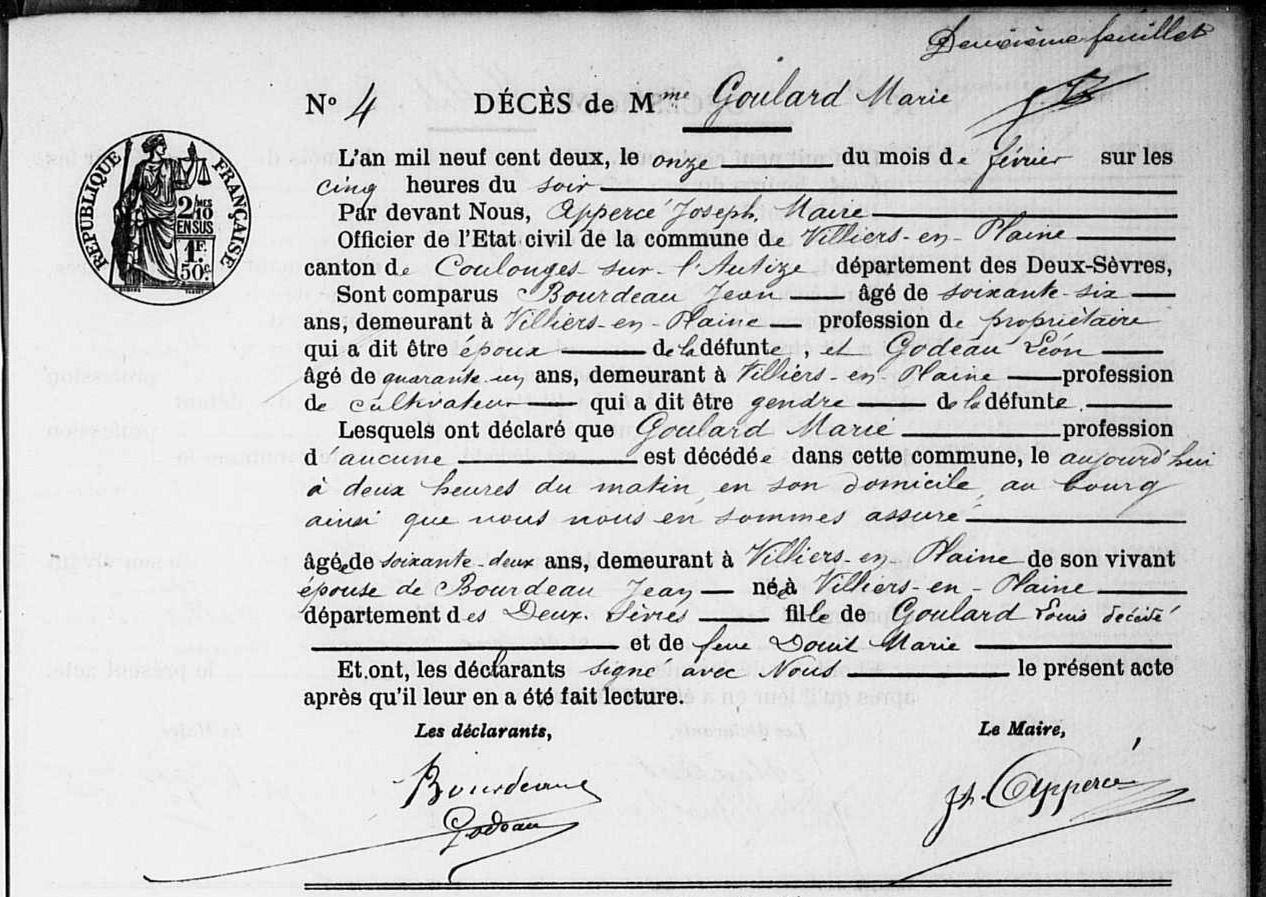 Deuxième feuillet
N° 4 DÉCÈS de Mme Goulard Marie
RÉPUBLIQUE FRANÇAISE
2/10MES
EN SUS
1F.
50c
L'an mil neuf cent deux, le onze du mois de février sur les
cinq heures du soir
Par devant Nous, Appercé Joseph, Maire
Officier de l'Etat civil de la commune de Villiers-en-Plaine
canton de Coulonges-sur-l'Autize département des Deux-Sèvres,
Sont comparus Bourdeau Jean âgé de soixante-six
ans, demeurant à Villiers-en-Plaine profession de propriétaire
qui a dit être époux de la défunte, et Godeau Léon
âgé de quarante-un ans, demeurant à Villiers-en-Plaine profession
de cultivateur qui a dit être gendre de la défunte.
Lesquels ont déclaré que Goulard Marie profession
d'aucune est décédée dans cette commune, le aujourd'hui
à deux heures du matin, en son domicile, au bourg
ainsi que nous nous en sommes assuré
âgée de soixante-deux ans, demeurant à Villiers-en-Plaine de son vivant
épouse de Bourdeau Jean née à Villiers-en-Plaine
département des Deux-Sèvres fille de Goulard Louis décédé
et de feue Douit Marie
Et ont, les déclarants signé avec Nous le présent acte
après qu'il leur en a été fait lecture.
Les déclarants, Le Maire,
Bourdeau Jh. Appercé
Godeau